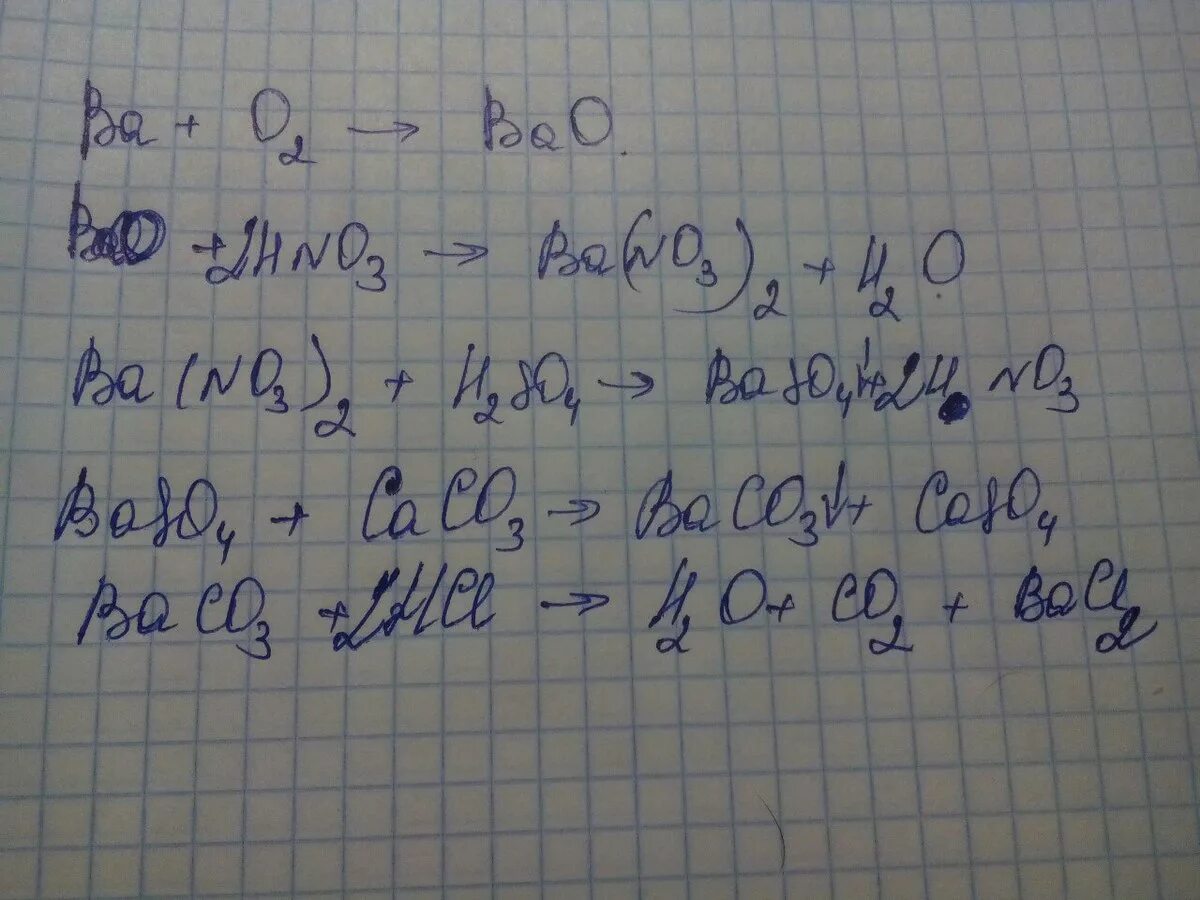 Ba + O₂ → BaO.
BaO + 2HNO₃ → Ba(NO₃)₂ + H₂O.
Ba(NO₃)₂ + H₂SO₄ → BaSO₄↓ + 2HNO₃
BaSO₄ + CaCO₃ → BaCO₃↓ + CaSO₄
BaCO₃ + 2HCl → H₂O + CO₂ + BaCl₂